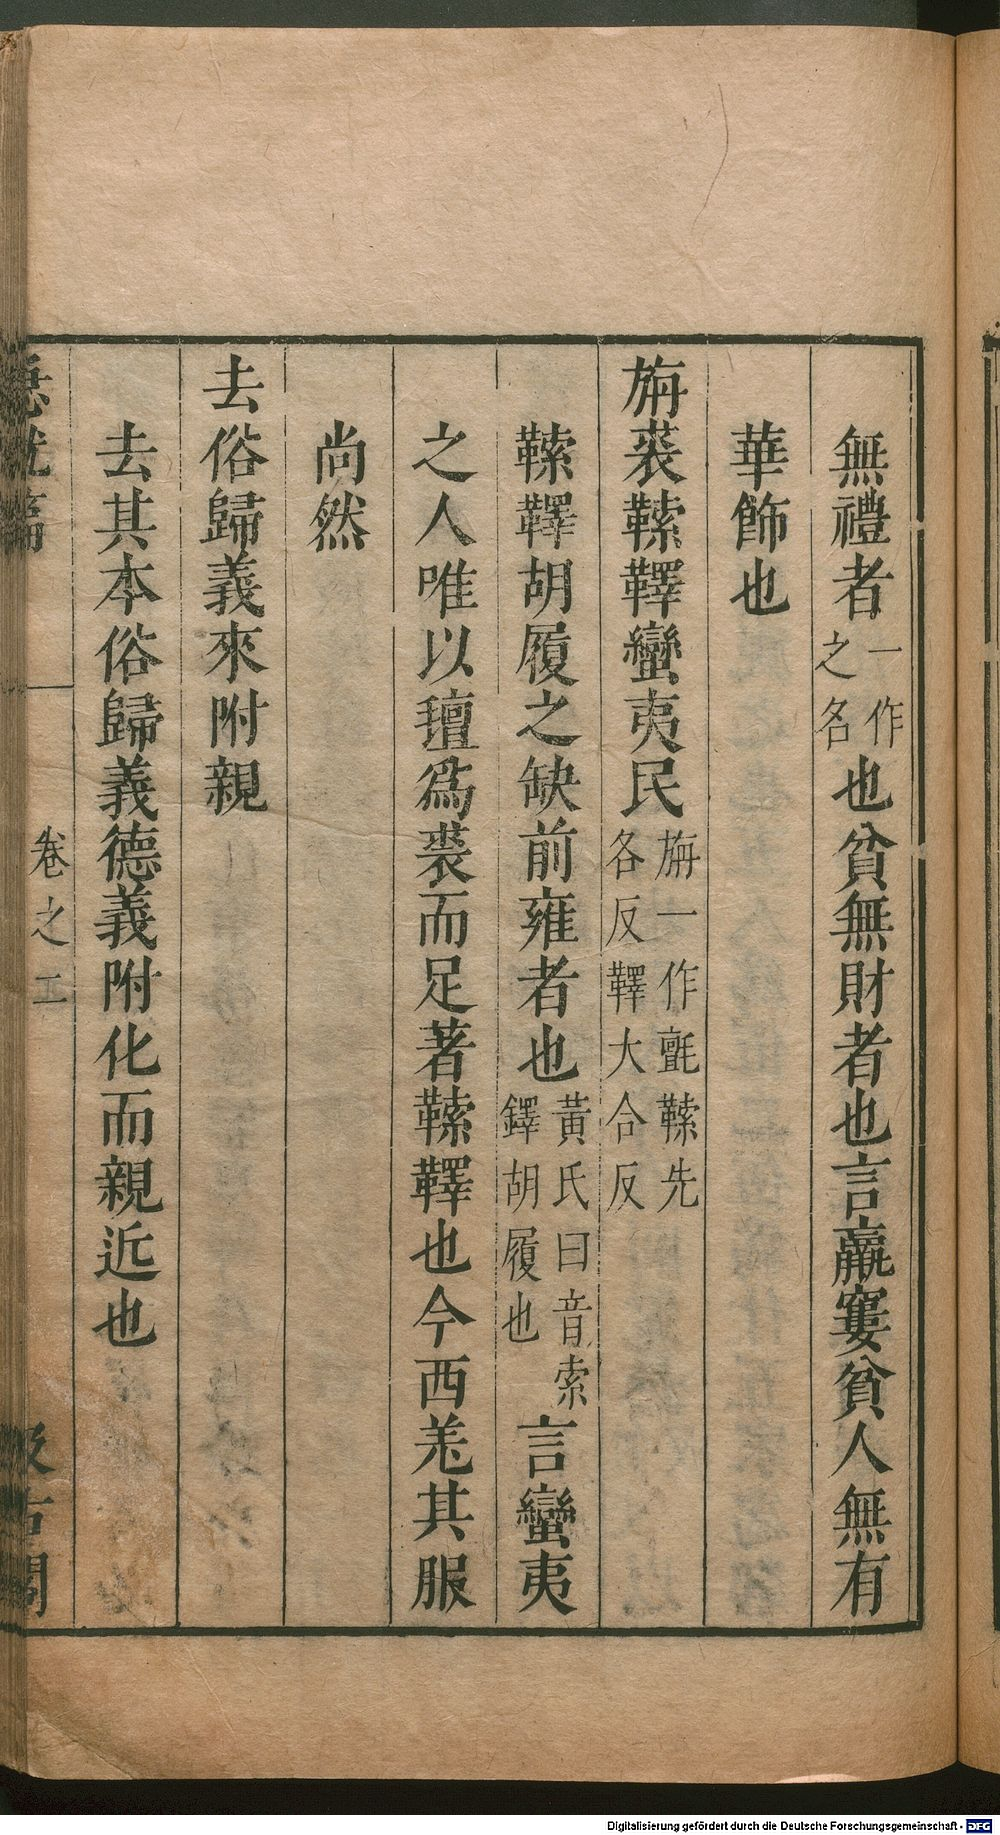 無禮者一作之名也貧無財者也言羸窶貧人無有
華飾也
旃裘䩡鞮蠻夷民旃一作氈䩡先各反鞮大合反
䩡鞮胡履之缺前雍者也黃氏曰音索鐸胡履也言蠻夷
之人唯以氊為裘而足著䩡鞮也今西羌其服
尚然
去俗歸義來附親
去其本俗歸義德義附化而親近也
急就篇
卷之二
汲古閣
Digitalisierung gefördert durch die Deutsche Forschungsgemeinschaft - DFG